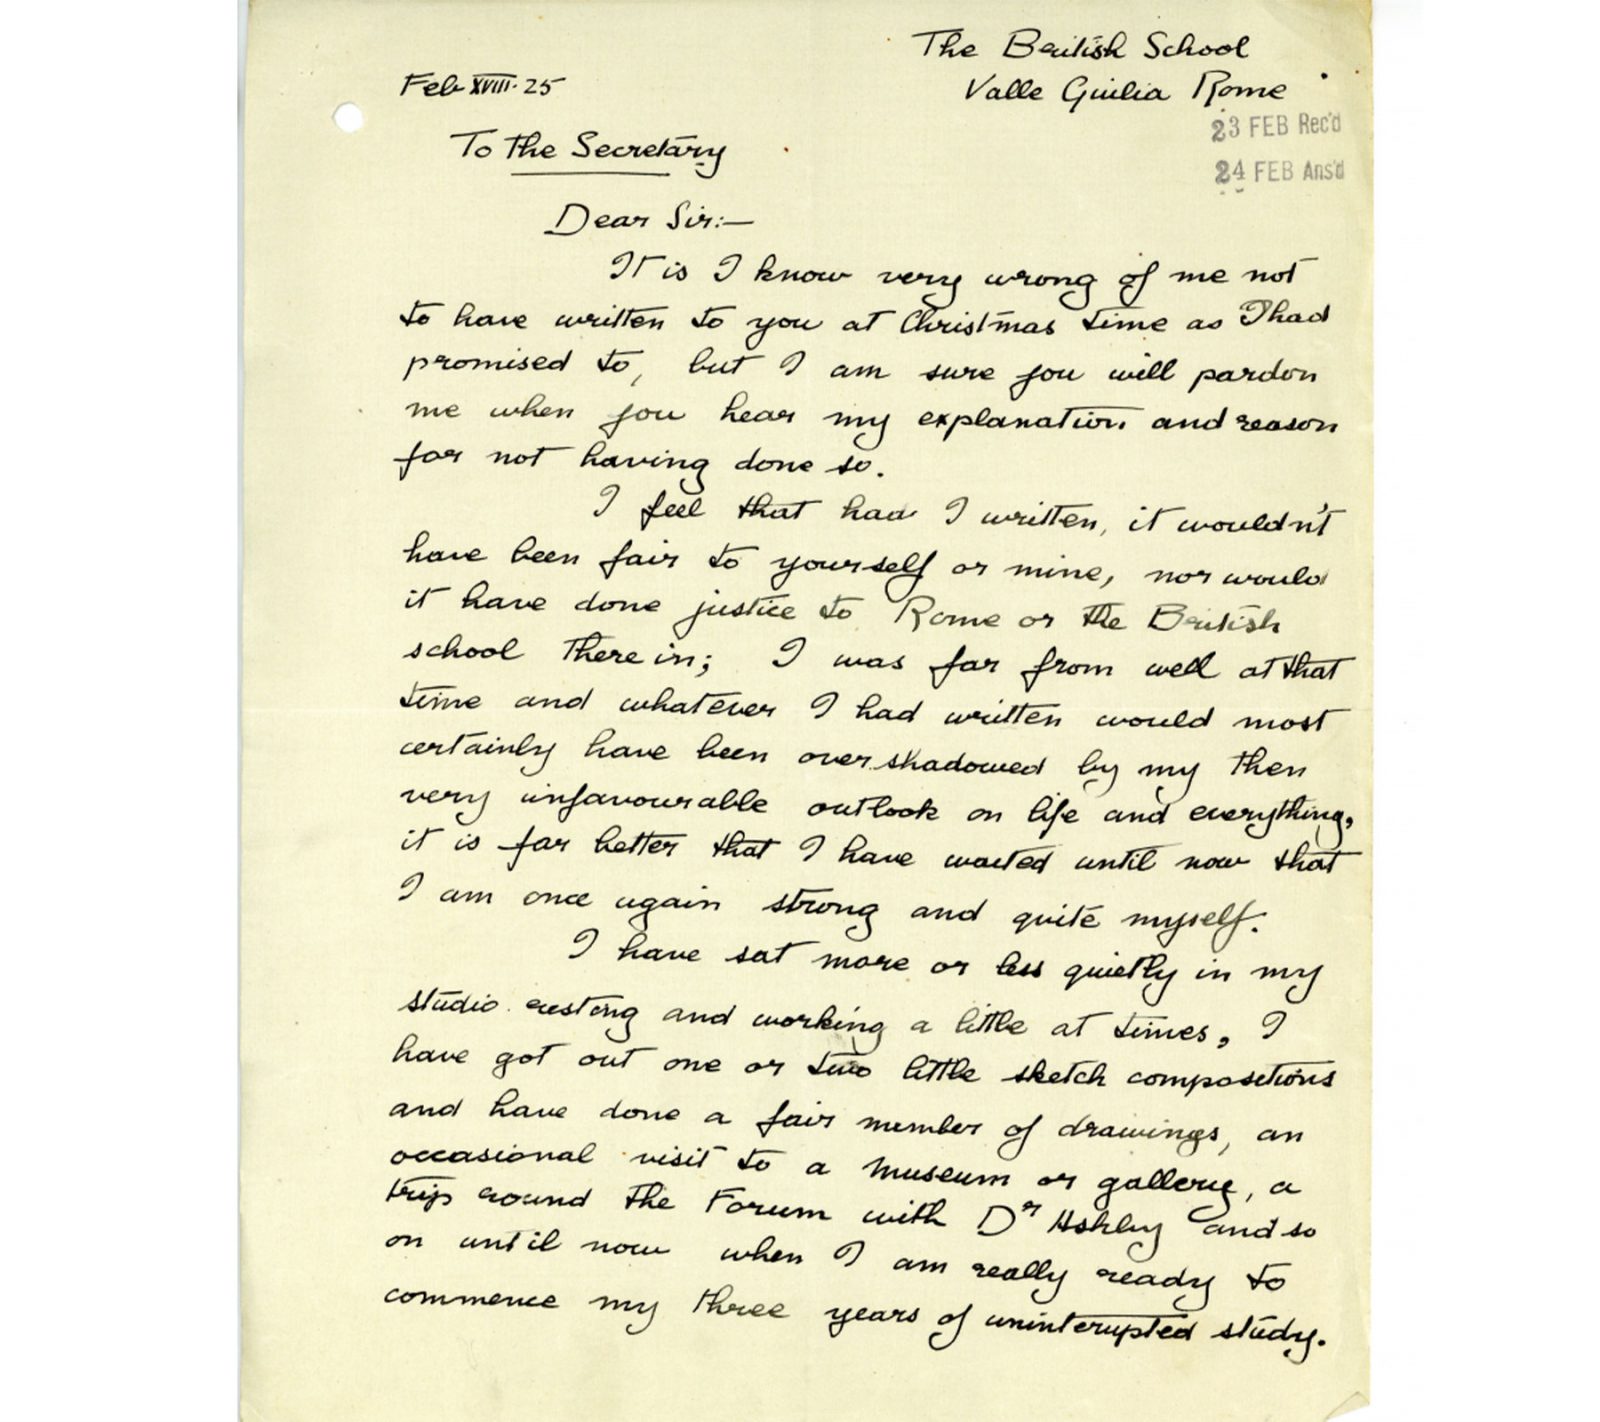 The British School
Feb XVIII. 25
Valle Giulia Rome
23 FEB Rec'd
To the Secretary
24 FEB Ans'd
Dear Sir:—
It is I know very wrong of me not
to have written to you at Christmas time as I had
promised to, but I am sure you will pardon
me when you hear my explanation and reason
for not having done so.
I feel that had I written, it wouldn't
have been fair to yourself or mine, nor would
it have done justice to Rome or the British
school therein; I was far from well at that
time and whatever I had written would most
certainly have been overshadowed by my then
very unfavourable outlook on life and everything,
it is far better that I have waited until now that
I am once again strong and quite myself.
I have sat more or less quietly in my
studio resting and working a little at times, I
have got out one or two little sketch compositions
and have done a fair member of drawings, an
occasional visit to a museum or gallery, a
trip round the Forum with Dr Ashby and so
on until now when I am really ready to
commence my three years of uninterupted study.